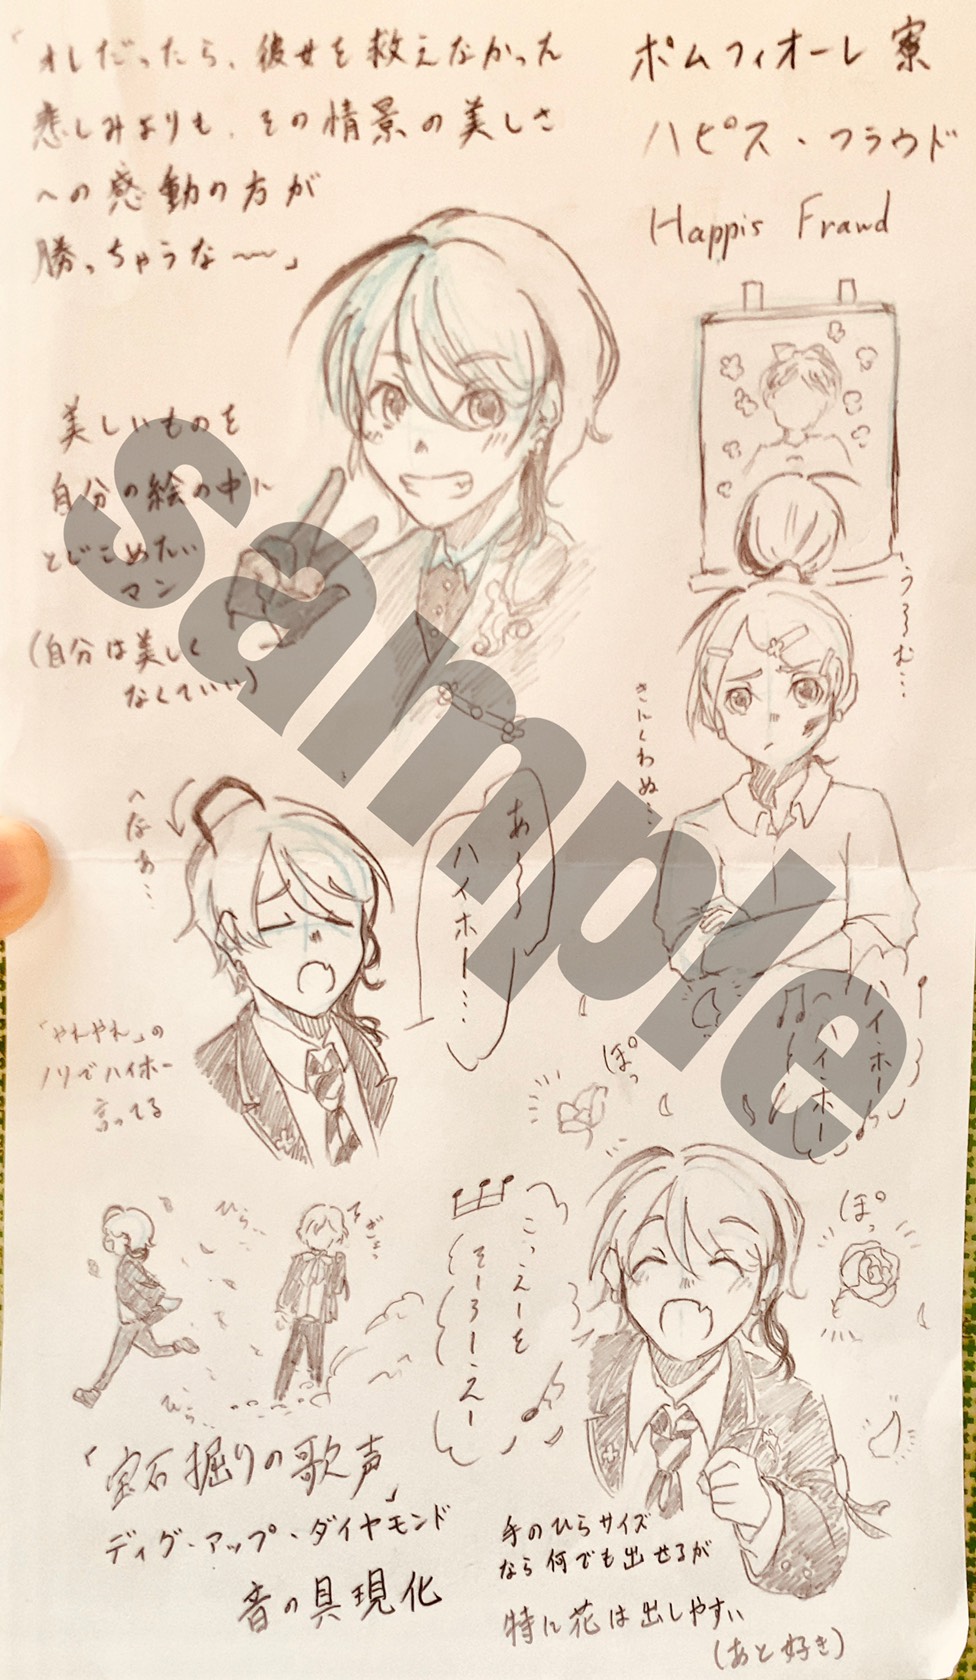 「オレだったら、彼女を救えなかった
悲しみよりも、その情景の美しさ
への感動の方が
勝っちゃうな〜〜」
ポムフィオーレ寮
ハピス・フラウド
Happis Fraud
美しいものを
自分の絵の中に
とじこめたい
マン
(自分は美しく
なくていい)
うろむ…
きにくわぬ…
へなぁ…
あ〜
ハイホー…
「やれやれ」の
ノリでハイホー
言ってる
ハイ・ホー
ハイ・ホー
ぽっ
ぽっ
こっえーを
そーろーえー
ひら…
ひら…
「宝石掘りの歌声」
ディグ・アップ・ダイヤモンド
音の具現化
手のひらサイズ
なら何でも出せるが
特に花は出しやすい
(あと好き)
sample